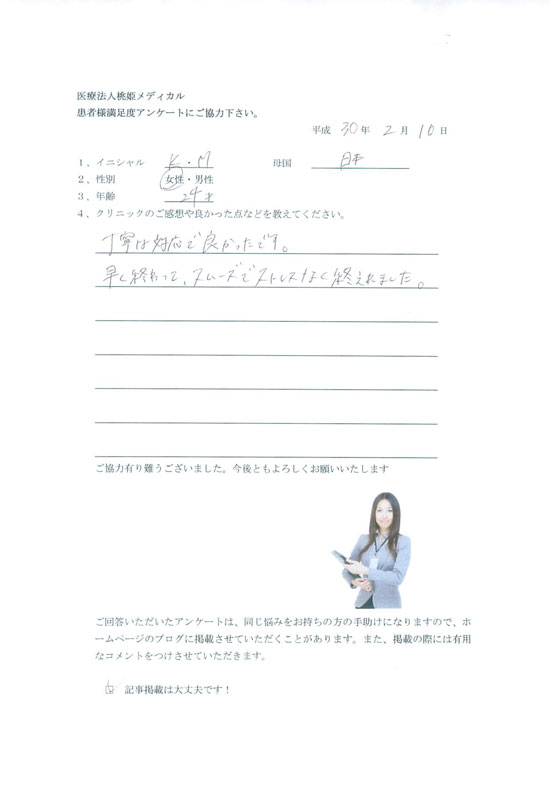 医療法人桃姫メディカル
患者様満足度アンケートにご協力下さい。
平成 30 年 2 月 10 日
1、イニシャル K・M 母国 日本
2、性別 女性・男性
3、年齢 24才
4、クリニックのご感想や良かった点などを教えてください。
丁寧な対応で良かったです。
早く終わって、スムーズでストレスなく終えれました。
ご協力有り難うございました。今後ともよろしくお願いいたします
ご回答いただいたアンケートは、同じ悩みをお持ちの方の手助けになりますので、ホ
ームページのブログに掲載させていただくことがあります。また、掲載の際には有用
なコメントをつけさせていただきます。
記事掲載は大丈夫です！